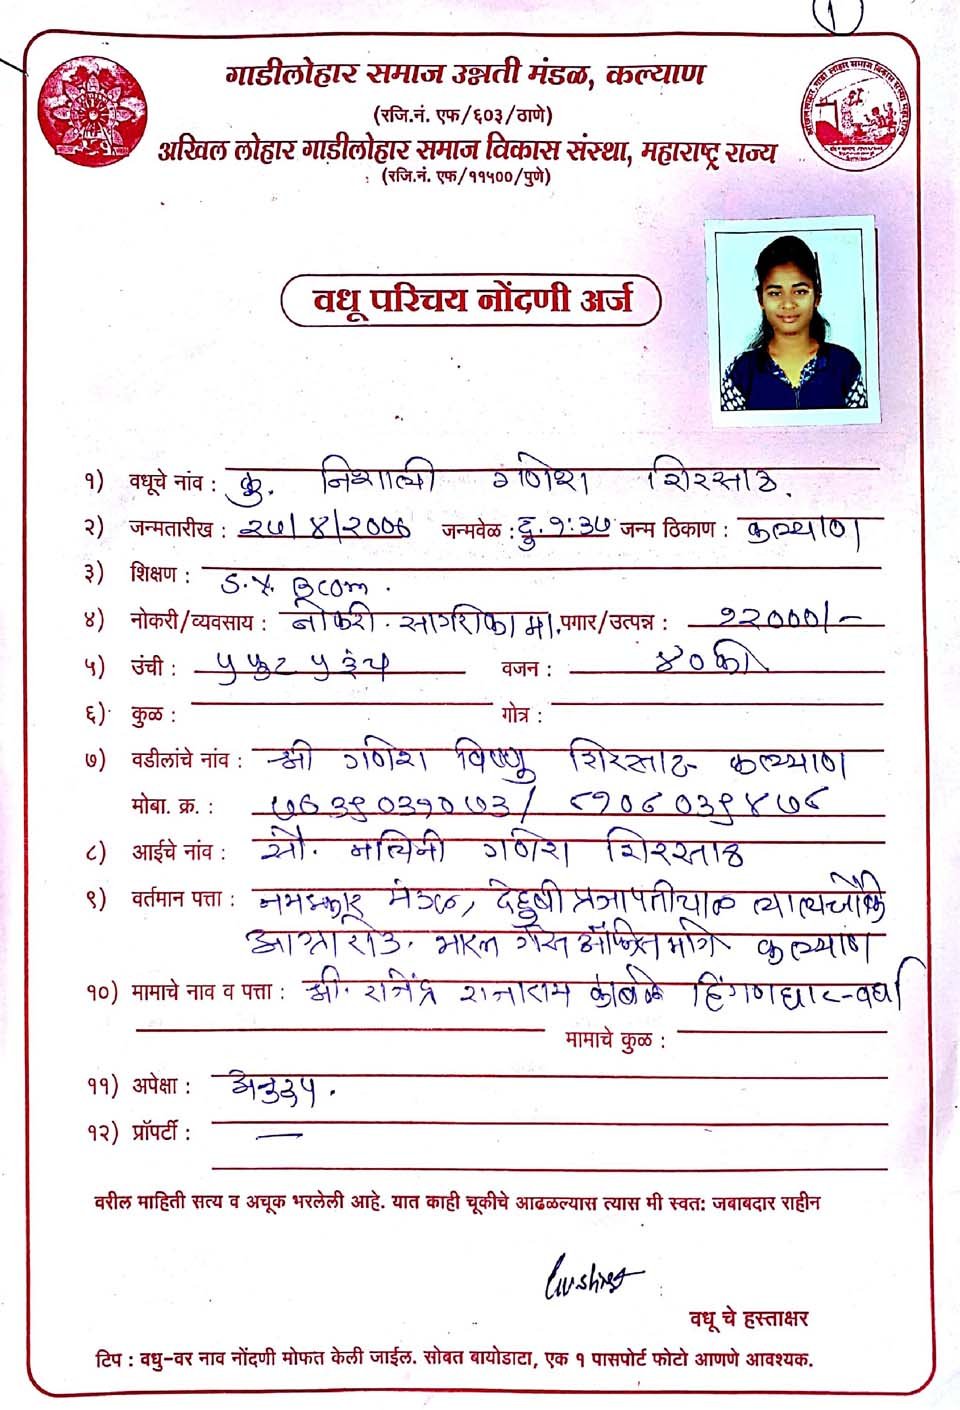 १
गाडीलोहार समाज उन्नती मंडळ, कल्याण
(रजि.नं. एफ/६०३/ठाणे)
अखिल लोहार गाडीलोहार समाज विकास संस्था, महाराष्ट्र राज्य
(रजि.नं. एफ/११५००/पुणे)
वधू परिचय नोंदणी अर्ज
१) वधूचे नांव : कु. गणेश शिरसाठ.
२) जन्मतारीख : जन्मवेळ : दु. १:३७ जन्म ठिकाण : कल्याण
३) शिक्षण : S.Y. Bcom.
४) नोकरी/व्यवसाय : नोकरी. पगार/उत्पन्न : १२०००/-
५) उंची : ५ फुट ५ इंच वजन : ४० की
६) कुळ : गोत्र :
७) वडीलांचे नांव : श्री गणेश विष्णु शिरसाठ कल्याण
मोबा. क्र. :
८) आईचे नांव : सौ. गणेश शिरसाठ
९) वर्तमान पत्ता : मंडळ, कल्याण
१०) मामाचे नाव व पत्ता : श्री. राजेंद्र राजाराम कांबळे हिंगणघाट-वर्धा
मामाचे कुळ :
११) अपेक्षा : अनुरूप.
१२) प्रॉपर्टी : —
वरील माहिती सत्य व अचूक भरलेली आहे. यात काही चूकीचे आढळल्यास त्यास मी स्वतः जबाबदार राहीन
वधू चे हस्ताक्षर
टिप : वधु-वर नाव नोंदणी मोफत केली जाईल. सोबत बायोडाटा, एक १ पासपोर्ट फोटो आणणे आवश्यक.